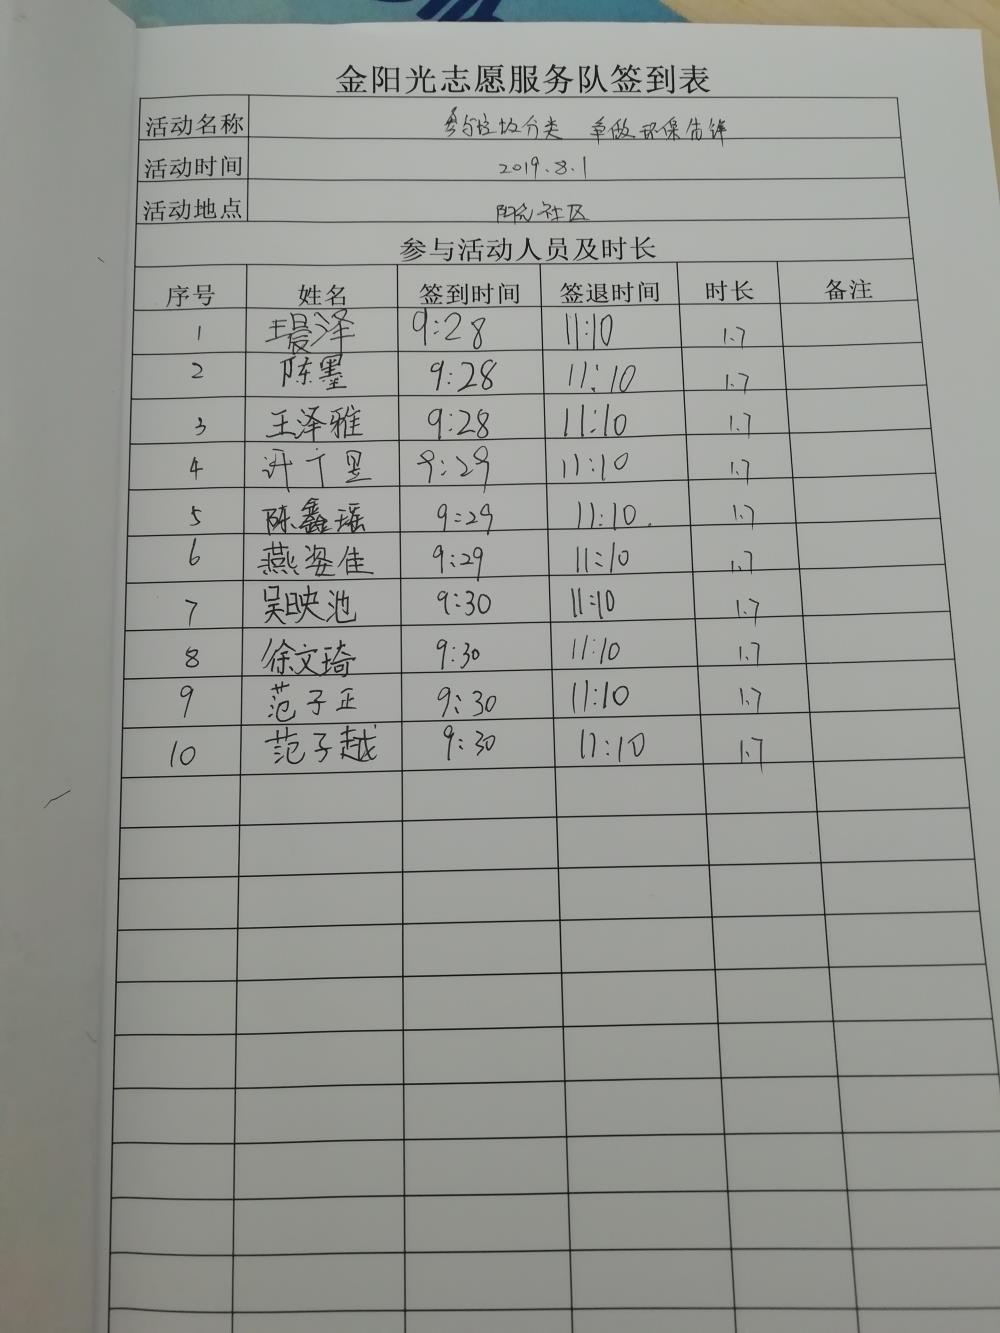 金阳光志愿服务队签到表
活动名称 参与垃圾分类 争做环保先锋
活动时间 2019.8.1
活动地点 阳光社区
参与活动人员及时长
序号 姓名 签到时间 签退时间 时长 备注
1 王晨泽 9:28 11:10 1.7
2 陈墨 9:28 11:10 1.7
3 王泽雅 9:28 11:10 1.7
4 9:29 11:10 1.7
5 陈鑫瑶 9:29 11:10. 1.7
6 燕姿佳 9:29 11:10 1.7
7 吴映池 9:30 11:10 1.7
8 徐文琦 9:30 11:10 1.7
9 范子正 9:30 11:10 1.7
10 范子越 9:30 11:10 1.7